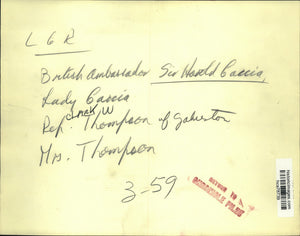 L G R
British Ambassador Sir Harold Caccia,
Lady Caccia
Clark W
Rep. Thompson of Galveston
Mrs. Thompson
3-59
RETURN TO